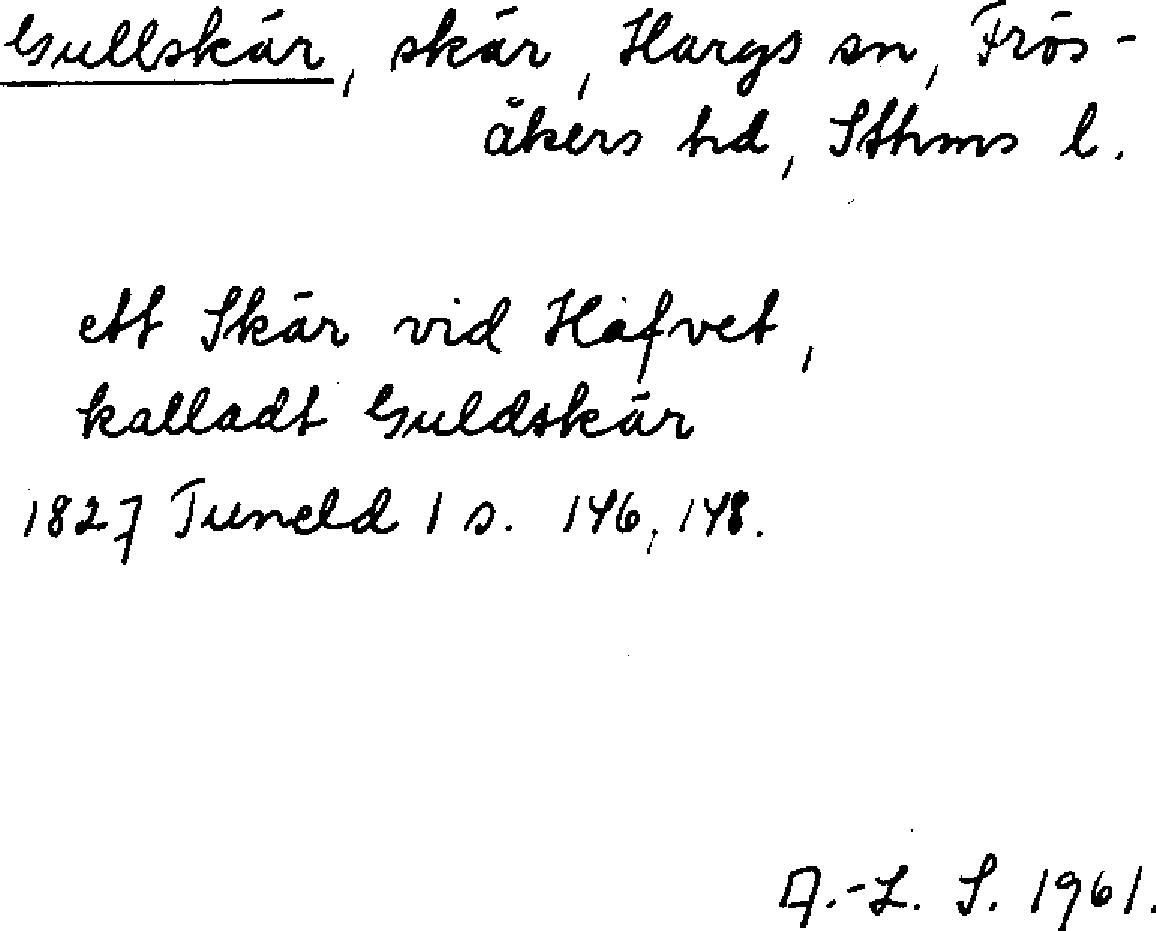 Gullskär, skär, Hargs sn, Frös-
åkers hd, Sthms l.
ett Skär vid Hafvet,
kalladt Guldskär
1827 Tuneld 1 s. 146, 148.
A.-L. S. 1961.